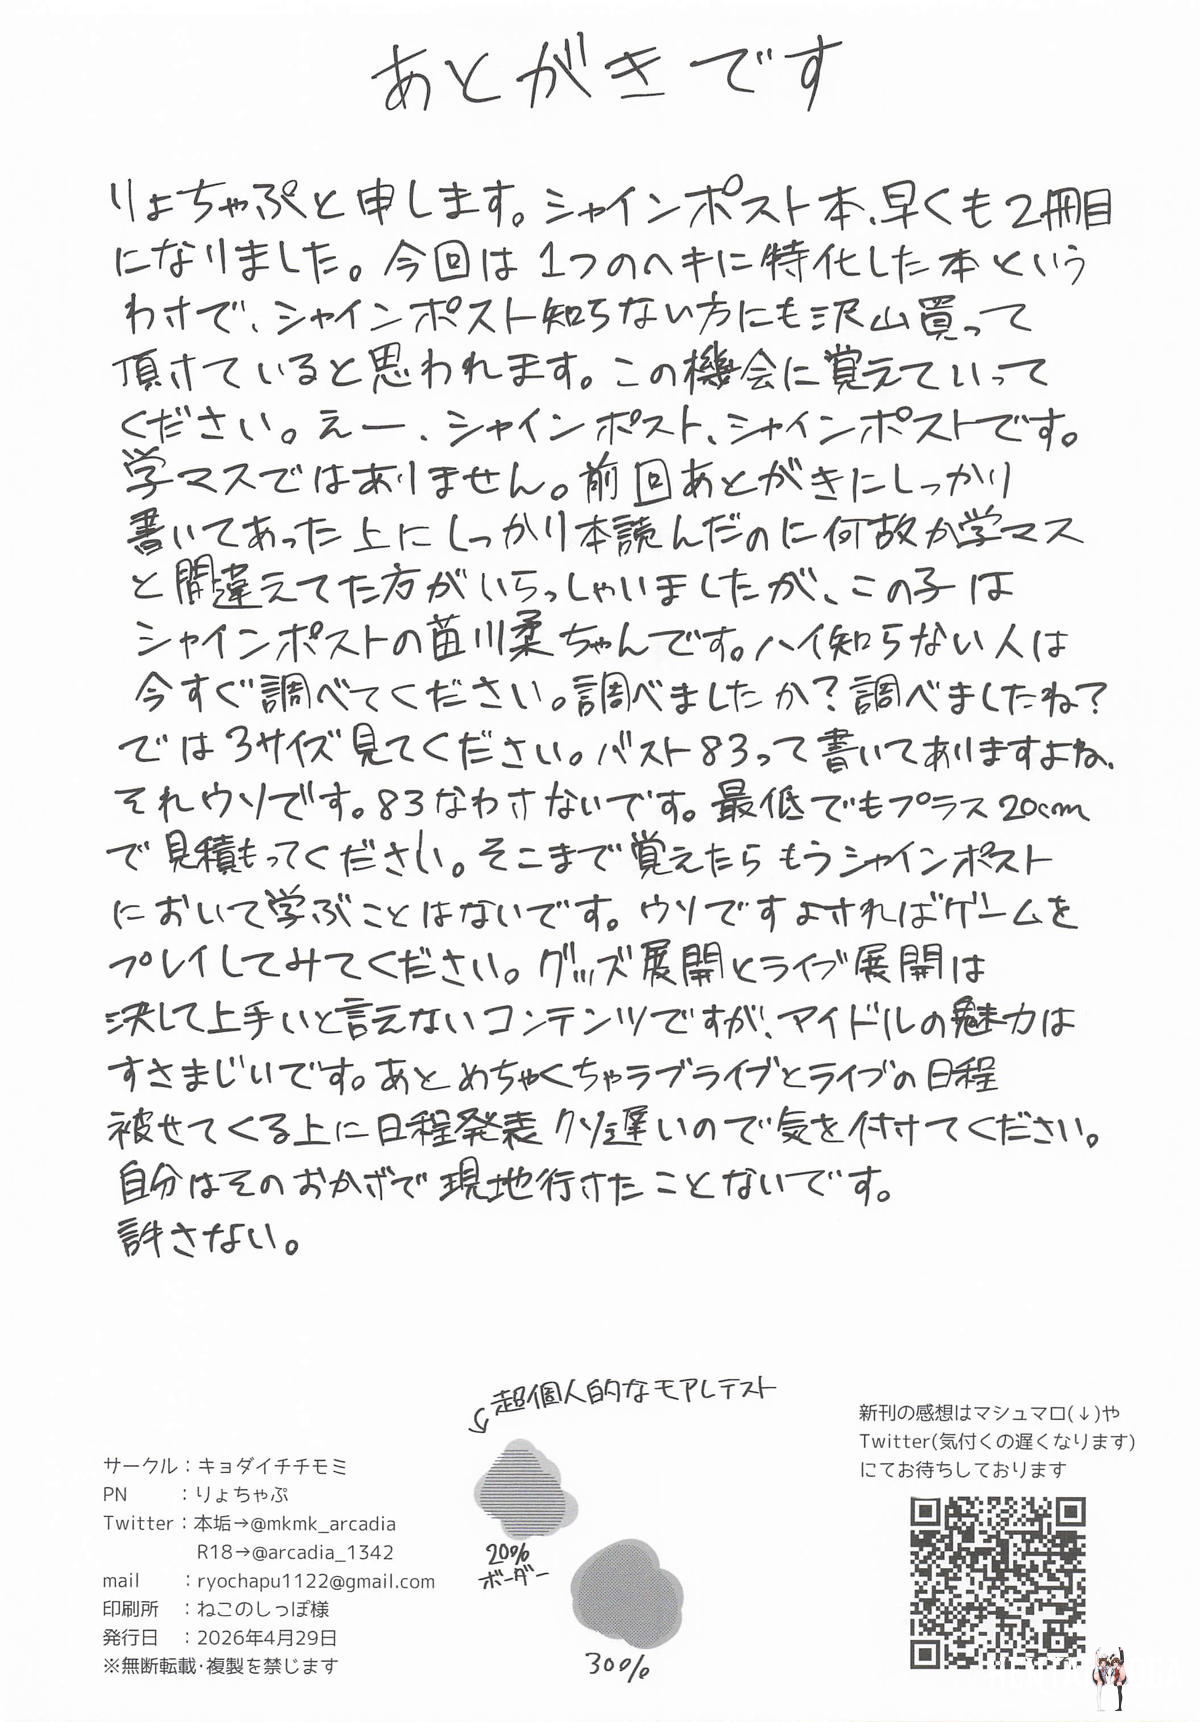 あとがきです
りょちゃぷと申します。シャインポスト本、早くも2冊目
になりました。今回は1つのヘキに特化した本という
わけで、シャインポスト知らない方にも沢山買って
頂けていると思われます。この機会に覚えていって
ください。えー、シャインポスト、シャインポストです。
学マスではありません。前回あとがきにしっかり
書いてあった上にしっかり本読んだのに何故か学マス
と間違えてた方がいらっしゃいましたが、この子は
シャインポストの苗川柔ちゃんです。ハイ知らない人は
今すぐ調べてください。調べましたか?調べましたね?
では3サイズ見てください。バスト83って書いてありますよね、
それウソです。83なわけないです。最低でもプラス20cm
で見積もってください。そこまで覚えたらもうシャインポスト
において学ぶことはないです。ウソですよければゲームを
プレイしてみてください。グッズ展開とライブ展開は
決して上手いと言えないコンテンツですが、アイドルの魅力は
すさまじいです。あとめちゃくちゃラブライブとライブの日程
被せてくる上に日程発表クソ遅いので気を付けてください。
自分はそのおかげで現地行けたことないです。
許さない。
超個人的なモアレテスト
20%
ボーダー
30%
サークル：キョダイチチモミ
PN：りょちゃぷ
Twitter：本垢→@mkmk_arcadia
R18→@arcadia_1342
mail：ryochapu1122@gmail.com
印刷所：ねこのしっぽ様
発行日：2026年4月29日
※無断転載･複製を禁じます
新刊の感想はマシュマロ(↓)や
Twitter(気付くの遅くなります)
にてお待ちしております